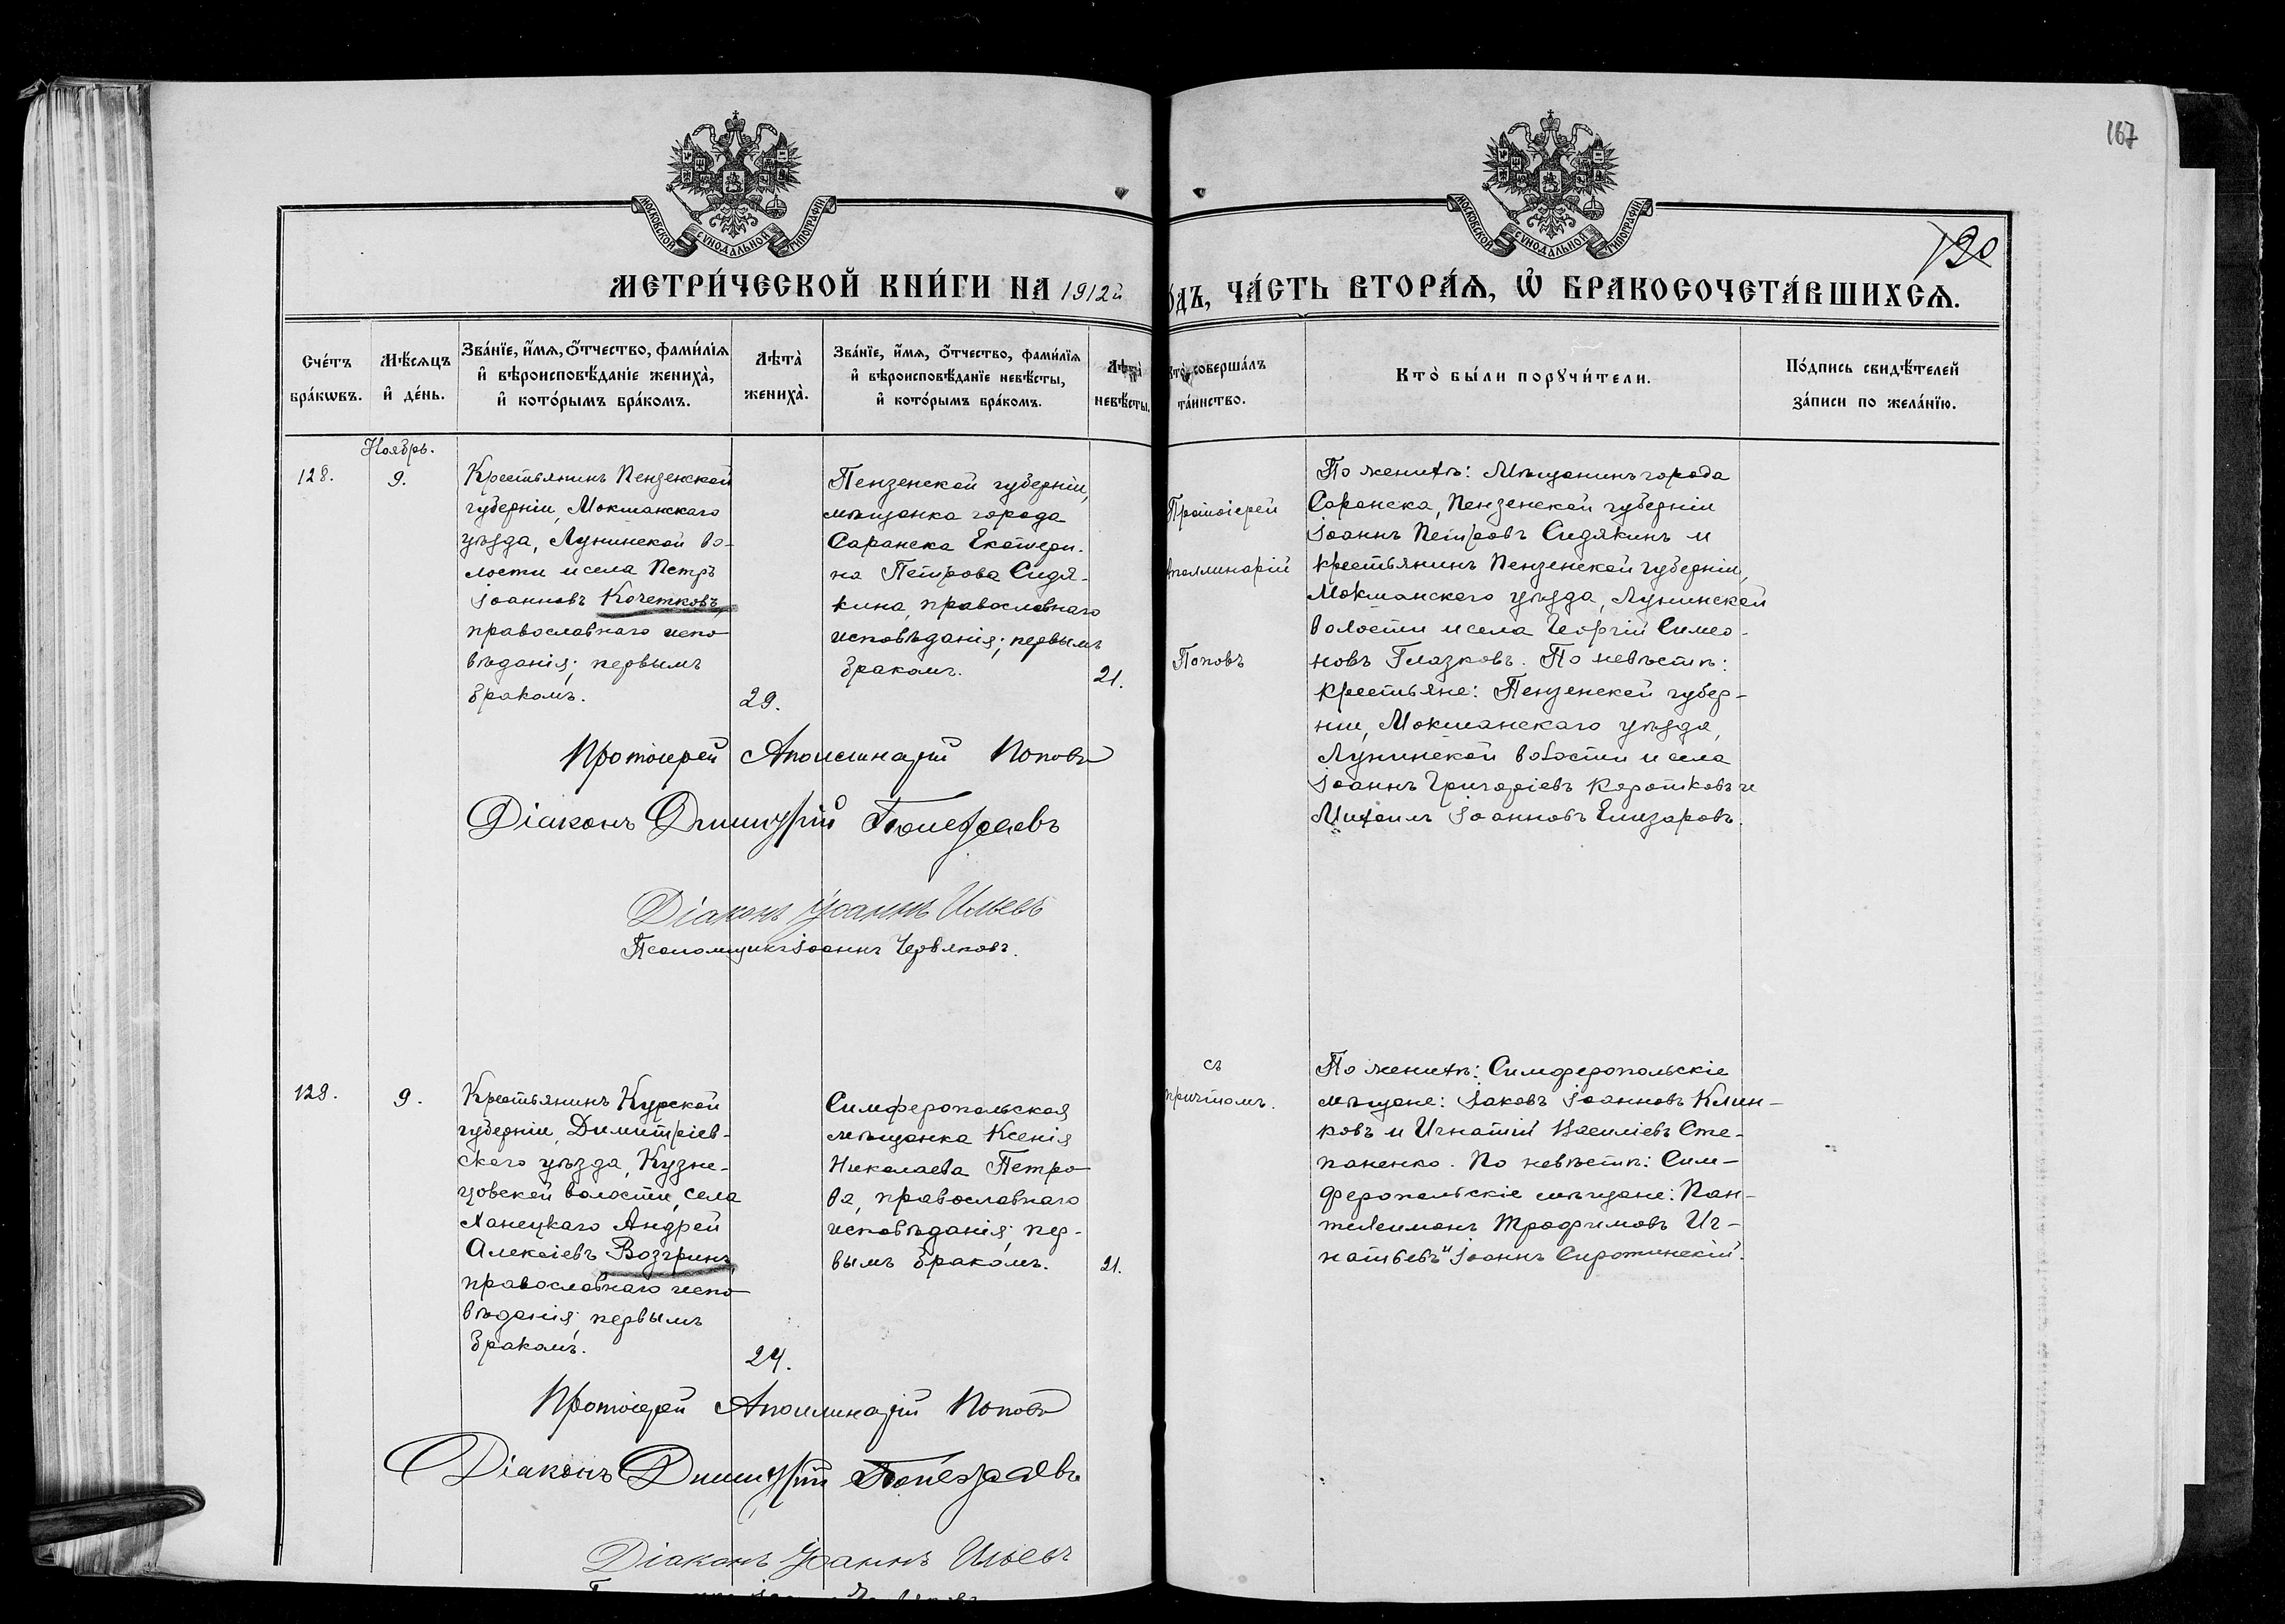 167
МОСКОВСКОЙ СѴНОДАЛЬНОЙ ТИПОГРАФІИ
МОСКОВСКОЙ СѴНОДАЛЬНОЙ ТИПОГРАФІИ
190
МЕТРИ́ЧЕСКОЙ КНИ́ГИ НА 1912й
О́ДЪ, ЧА́СТЬ ВТОРА́Ѧ, Ѡ҆ БРАКОСОЧЕТА́ВШИХСѦ.
Сче́тъ бра́кѡвъ.
Мѣ́сѧцъ и҆ де́нь.
Зва́нїе, и҆́мѧ, ѻ҆́тчество, фами́лїѧ
и҆ вѣроисповѣ́данїе жениха̀,
и҆ кото́рымъ бра́комъ.
Лѣта̀ жениха̀.
Зва́нїе, и҆́мѧ, ѻ҆́тчество, фами́лїѧ
и҆ вѣроисповѣ́данїе невѣ́сты,
и҆ кото́рымъ бра́комъ.
Лѣта̀ невѣ́сты.
Кто̀ соверша́лъ
та́инство.
Кто̀ бы́ли порꙋчи́тели.
По́дпись свидѣ́телей
за́писи по жела́нїю.
Ноябрь.
128.
9.
Крестьянинъ Пензенской
губерніи, Мокшанскаго
уѣзда, Лунинской во-
лости и села Петръ
Іоанновъ Кочетковъ,
православнаго испо-
вѣданія; первымъ
бракомъ.
29.
Пензенской губерніи,
мѣщанка города
Саранска Екатери-
на Петрова Сидя-
кина, православнаго
исповѣданія; первымъ
бракомъ.
21.
Протоіерей
Аполлинарій
Поповъ
По женихѣ: Мѣщанинъ города
Саранска, Пензенской губерніи
Іоаннъ Петровъ Сидякинъ и
крестьянинъ Пензенской губерніи,
Мокшанскаго уѣзда, Лунинской
волости и села Георгій Симео-
новъ Глазковъ. По невѣстѣ:
крестьяне: Пензенской губер-
ніи, Мокшанскаго уѣзда,
Лунинской волости и села
Іоаннъ Григоріевъ Коротковъ и
Михаилъ Іоанновъ Елизаровъ.
Протоіерей Аполлинарій Поповъ
Діаконъ Димитрій
Діаконъ Іоаннъ Ильевъ
Псаломщикъ Іоаннъ Червяковъ.
129.
9.
Крестьянинъ Курской
губерніи, Димитріев-
скаго уѣзда, Кузне-
цовской волости, села
Ханецкаго Андрей
Алексіевъ Возгринъ,
православнаго испо-
вѣданія; первымъ
бракомъ.
24.
Симферопольская
мѣщанка Ксенія
Николаева Петро-
ва, православнаго
исповѣданія; пер-
вымъ бракомъ.
21.
съ
причтомъ.
По женихѣ: Симферопольскіе
мѣщане: Іаковъ Іоанновъ Клин-
ковъ и Игнатій Василіевъ Сте-
паненко. По невѣстѣ: Сим-
феропольскіе мѣщане: Пан-
телеимонъ Трофимовъ Иг-
натьевъ и Іоаннъ Сиротинскій.
Протоіерей Аполлинарій Поповъ
Діаконъ Димитрій
Діаконъ Іоаннъ Ильевъ